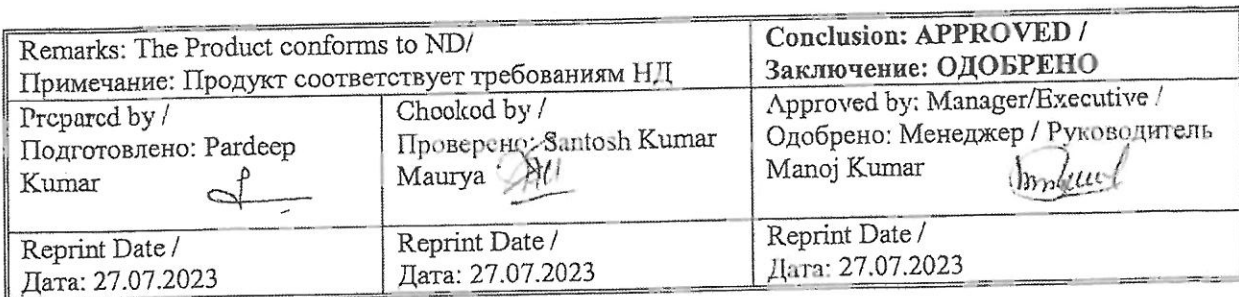 Remarks: The Product conforms to ND/
Примечание: Продукт соответствует требованиям НД
Conclusion: APPROVED /
Заключение: ОДОБРЕНО
Prepared by /
Подготовлено: Pardeep
Kumar
Checked by /
Проверено: Santosh Kumar
Maurya
Approved by: Manager/Executive /
Одобрено: Менеджер / Руководитель
Manoj Kumar
Reprint Date /
Дата: 27.07.2023
Reprint Date /
Дата: 27.07.2023
Reprint Date /
Дата: 27.07.2023